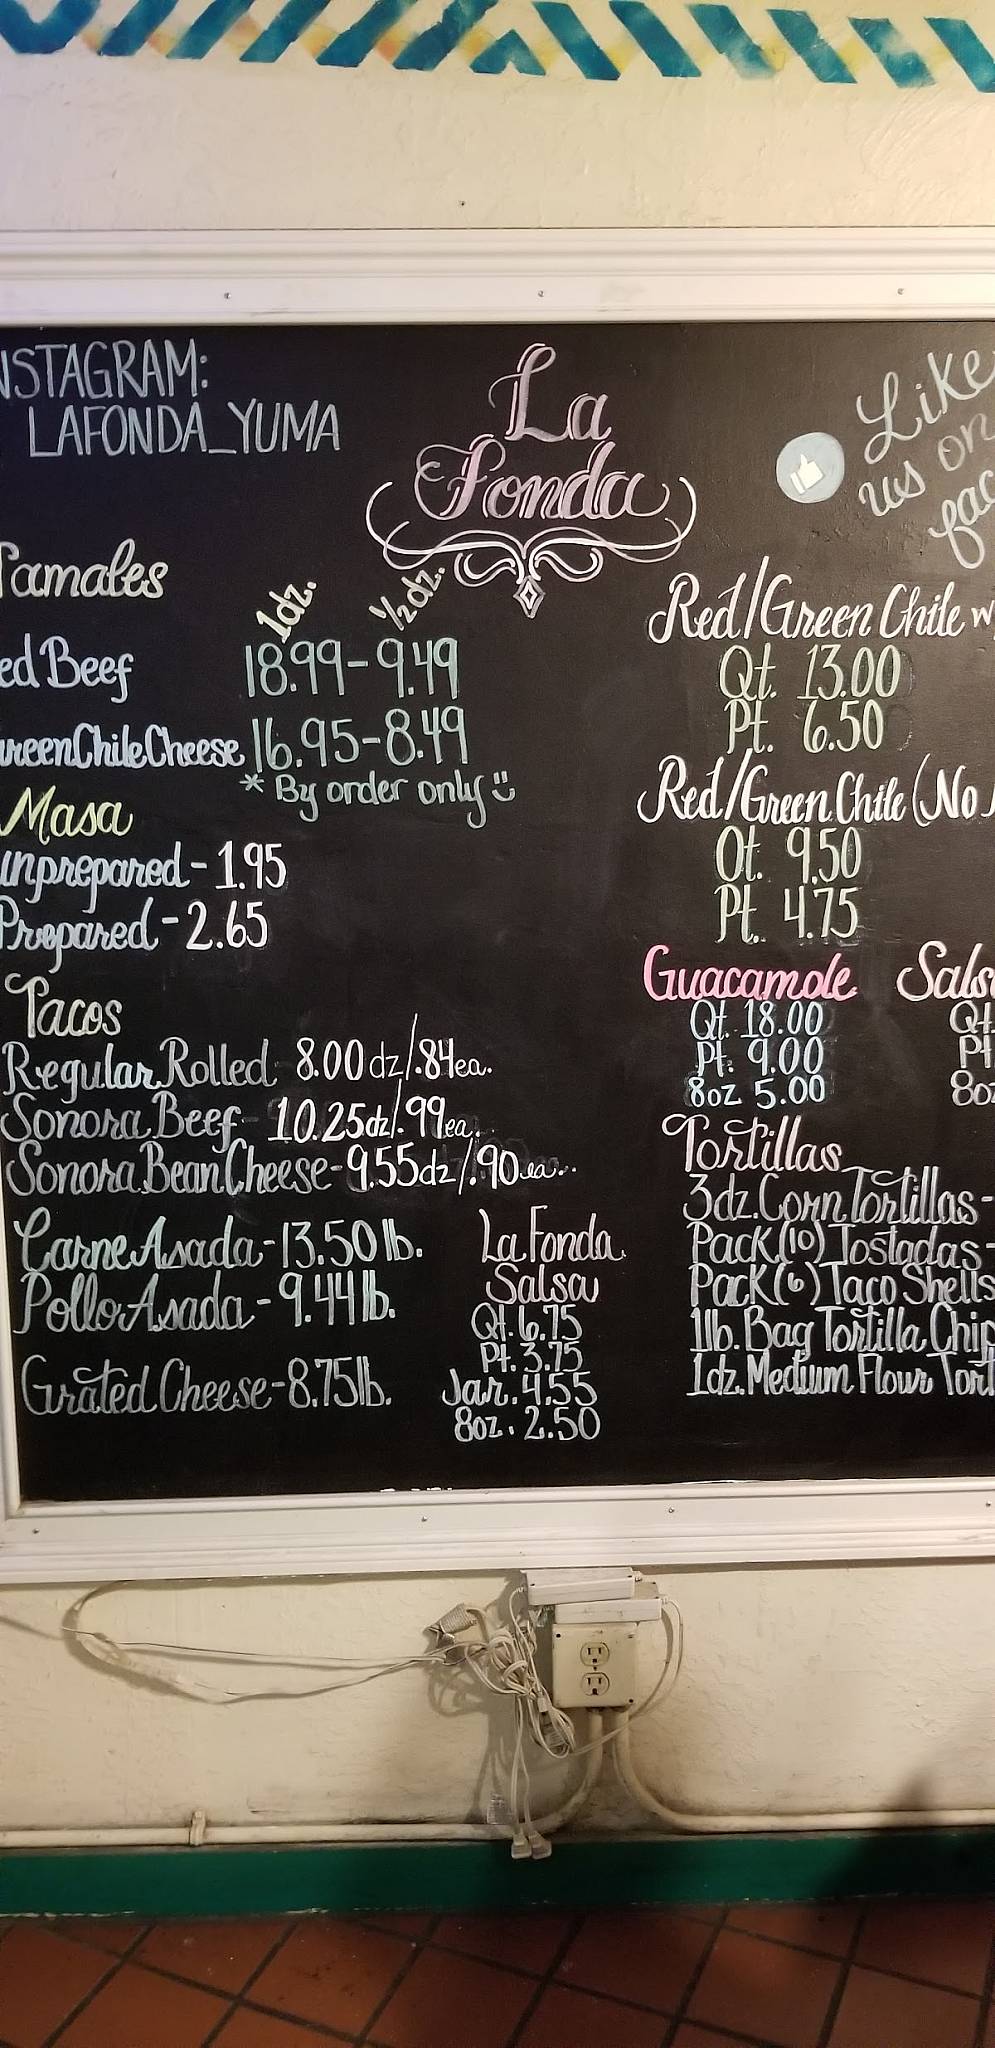 NSTAGRAM:
LAFONDA_YUMA
La
Fonda
Like
us on
fac
Tamales
1dz.
1/2 dz.
ed Beef 18.99-9.49
reen Chile Cheese 16.95-8.49
* By order only
Masa
unprepared-1.95
Prepared-2.65
Tacos
Regular Rolled 8.00dz/.84ea.
Sonora Beef-10.25dz/.99ea.
Sonora Bean Cheese-9.55dz/.90ea.
Carne Asada-13.50 lb.
Pollo Asada-9.44 lb.
Grated Cheese-8.75 lb.
La Fonda
Salsa
Qt. 6.75
Pt. 3.75
Jar. 4.55
8oz. 2.50
Red/Green Chile w
Qt. 13.00
Pt. 6.50
Red/Green Chile (No
Qt. 9.50
Pt. 4.75
Guacamole
Qt. 18.00
Pt. 9.00
8oz 5.00
Salsa
Qt
Pt
8oz
Tortillas
3dz. Corn Tortillas-
Pack (10) Tostadas-
Pack (6) Taco Shells
1lb. Bag Tortilla Chip
1dz. Medium Flour Tort